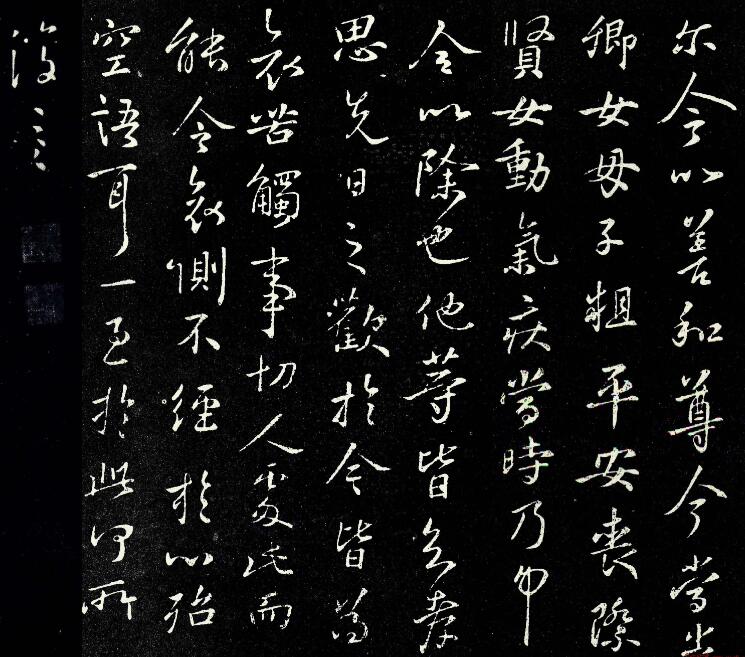 尔今以善和尊今當出
卿女母子粗平安喪際
賢女動氣疾當時乃
今以除也他等皆無恙
思先日之歡於今皆為
哀苦觸事切人處此而
能令哀惻不經於心殆
空語耳一過於此何所
復言